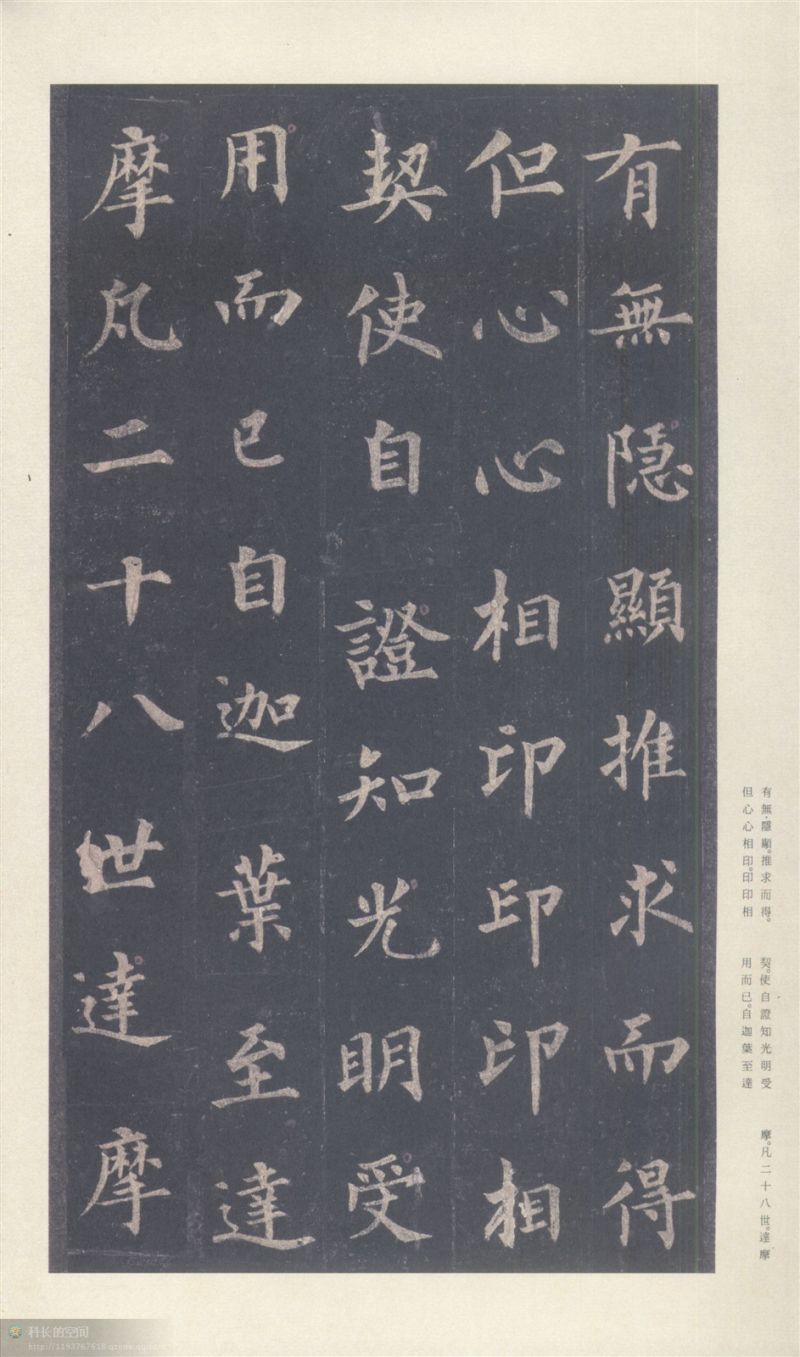 有無隱顯推求而得
但心心相印印印相
契使自證知光明受
用而已自迦葉至達
摩凡二十八世達摩
有無隱顯。推求而得。
但心心相印。印印相
契。使自證知光明受
用而已。自迦葉至達
摩。凡二十八世。達摩
科长的空间